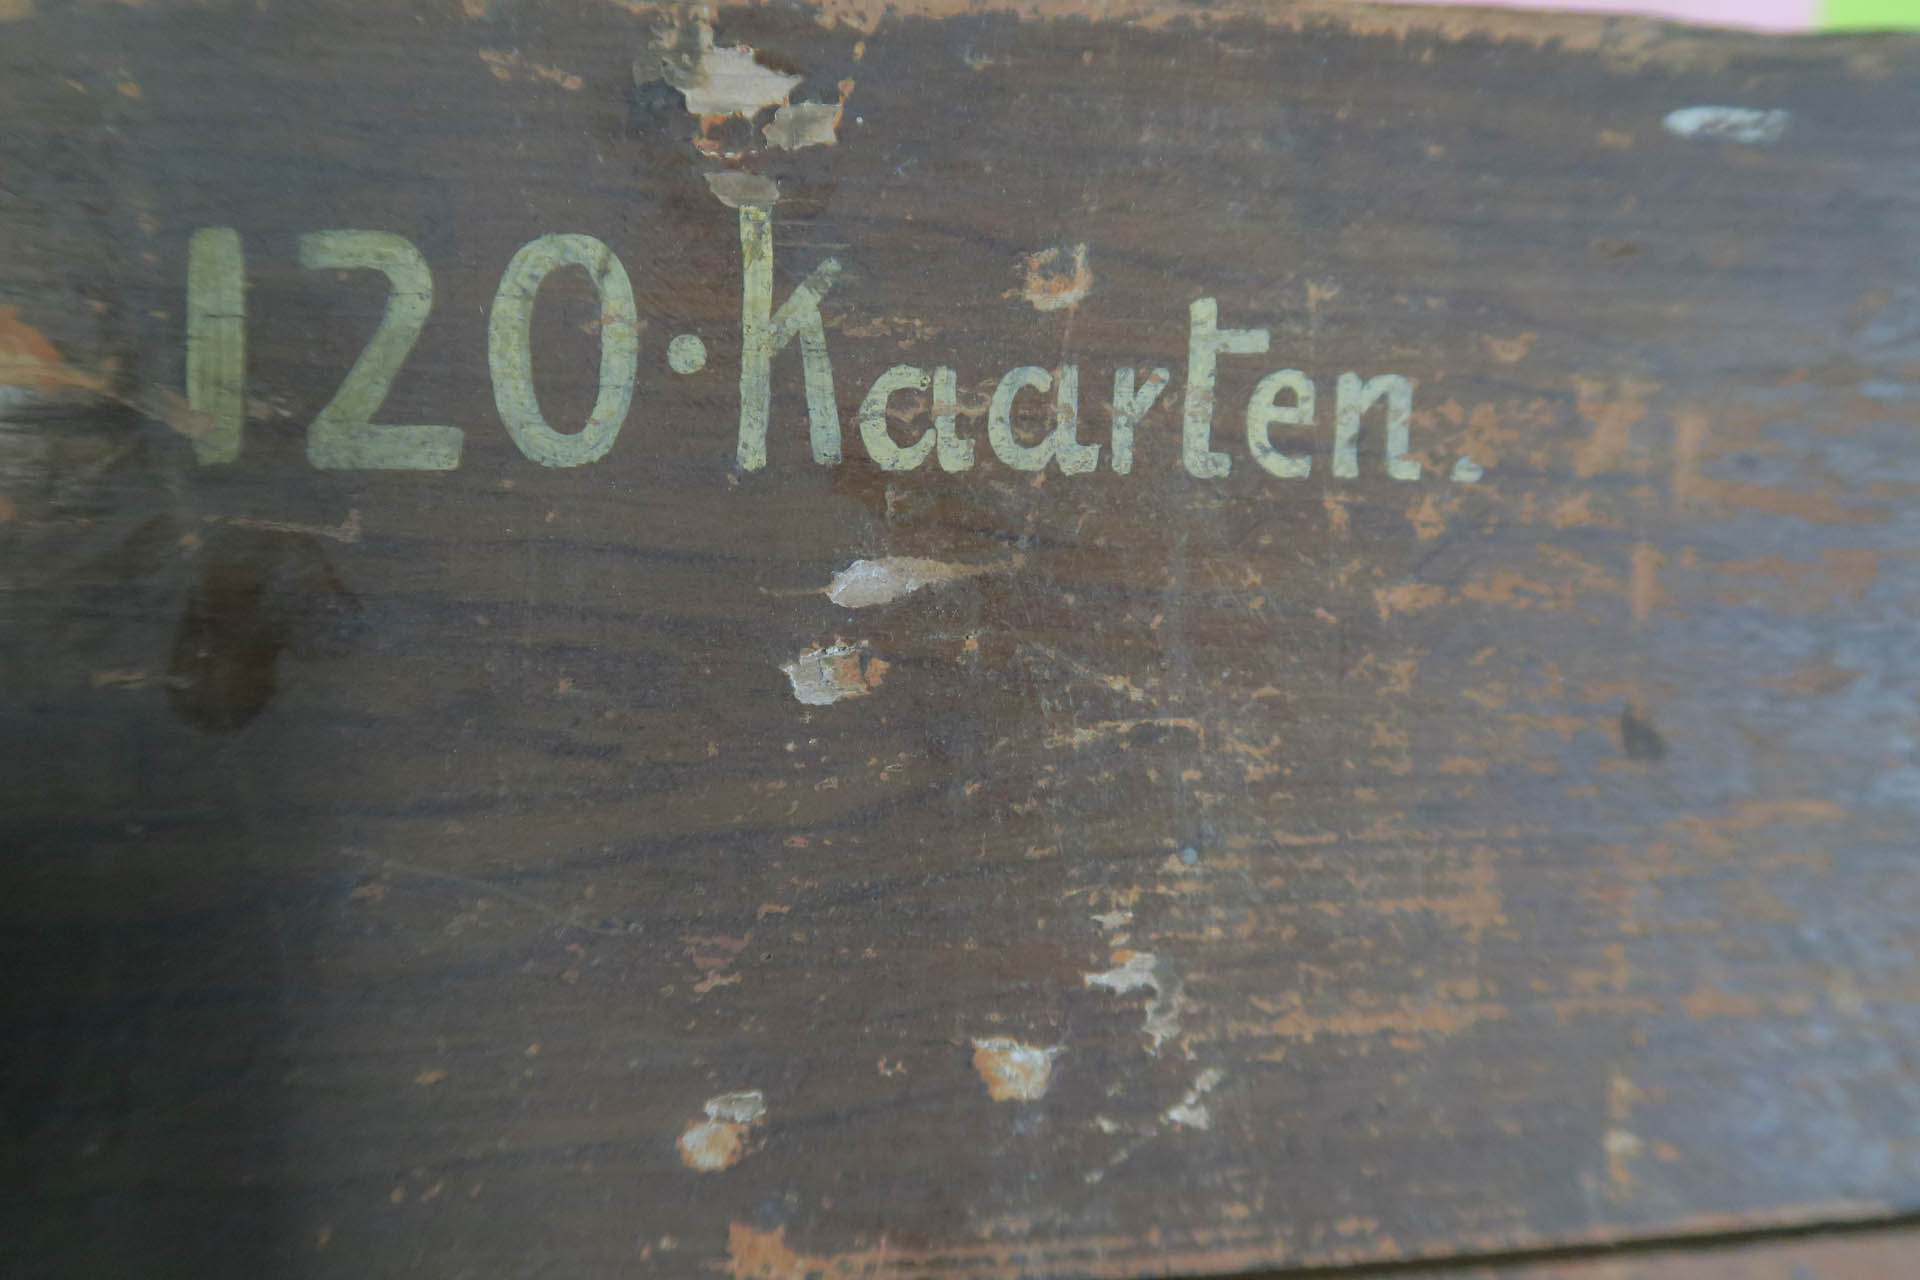 120·Kaarten.